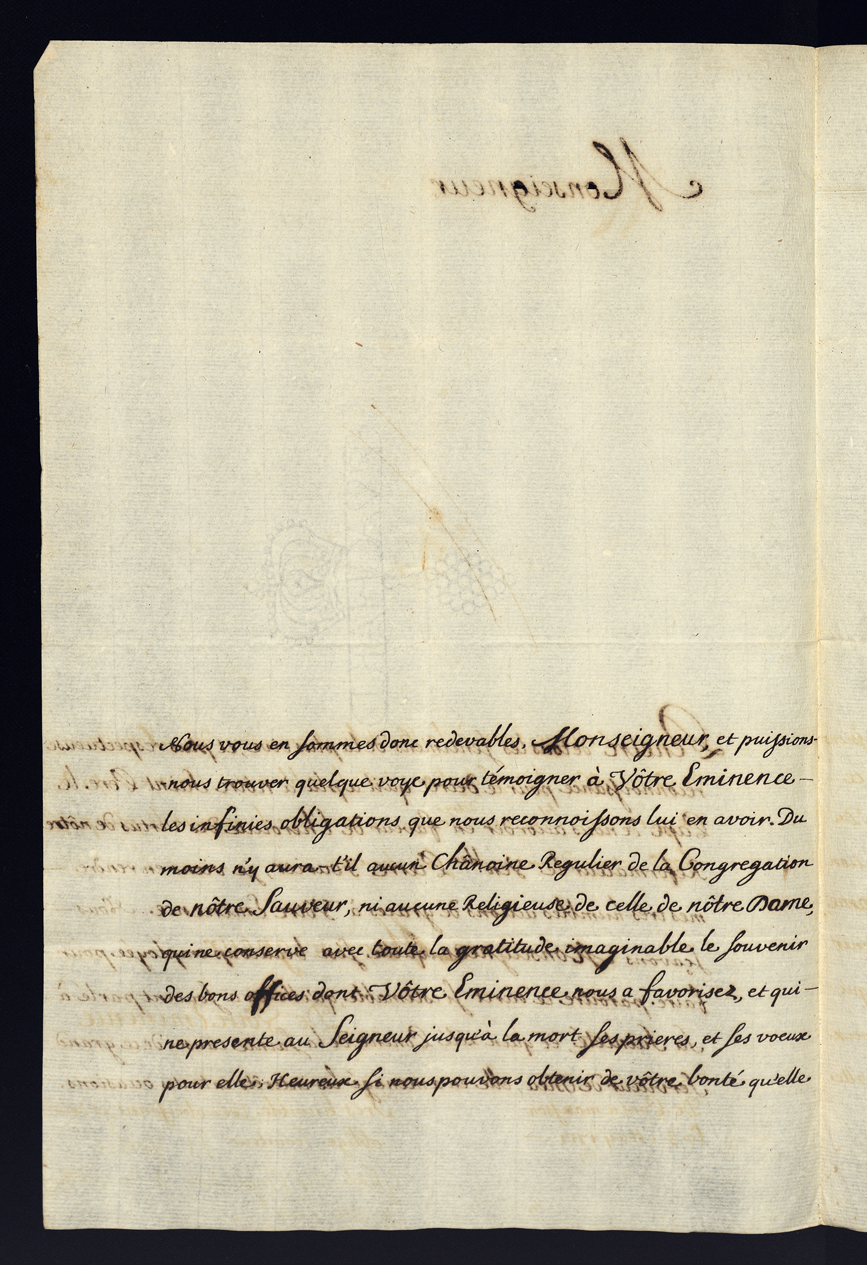 Monseigneur
Nous vous en sommes donc redevables, Monseigneur, et puissions-
nous trouver quelque voye pour témoigner à Vôtre Eminence –
les infinies obligations que nous reconnoissons lui en avoir. Du
moins n'y aura-t'il aucun Chânoine Regulier de la Congregation
de nôtre Sauveur, ni aucune Religieuse de celle de nôtre Dame,
qui ne conserve avec toute la gratitude imaginable le souvenir
des bons offices dont Vôtre Eminence nous a favorisez, et qui –
ne presente au Seigneur jusqu'à la mort ses prieres, et ses voeux
pour elle. Heureux si nous pouvons obtenir de vôtre bonté qu'elle